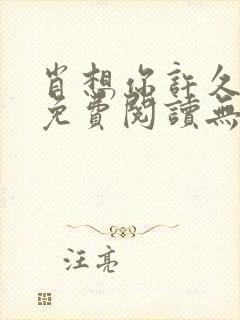 肖想你許久
免費閱讀無
汪亮